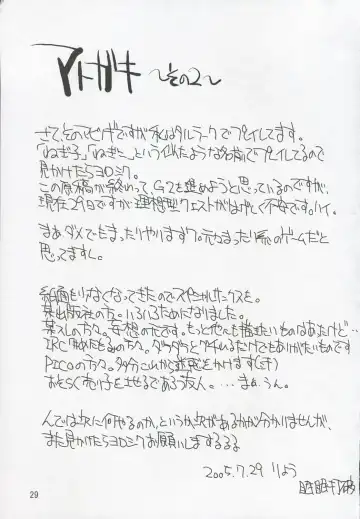 アトガキ 〜その2〜
さて、そのマビノギですが私はタルラークでプレイしてます。
「ねぎ子」「ねぎこ」という似たような名前でプレイしてるので
見かけたらヨロシク。
この原稿が終わって、G2を進めようと思っているのですが、
現在29日ですが理想型クエストがはげしく不安です。ハイ。
まぁダメでもまったりやりますワ。元々まったり系のゲームだと
思ってますし。
紙面も少なくなってきたのでスペシャルサークスを。
某出版社の方。いろいろためになりました。
某スレの方々。妄想の元です。もっと他にも描きたいものはあるけど…
IRC
PICOの方々。多分これから迷惑をかけます(汗)
おそらく売り子をせるであろう友人。…まぁ、うん。
んでは次に何やるのか、というか次があるかが分かりませんが、
また見かけたらヨロシクお願いしまするるる
2005.7.29 りょう
29